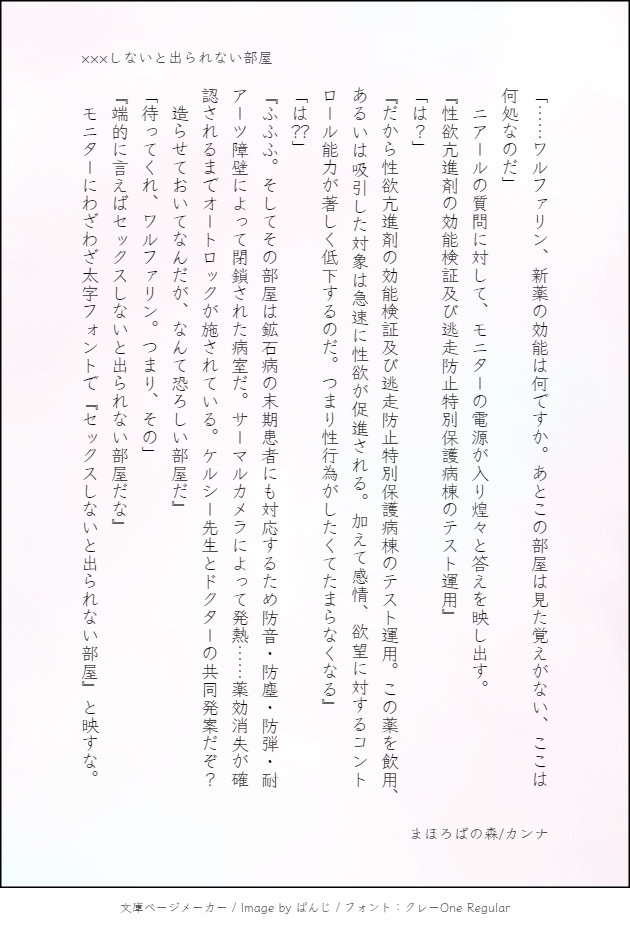 ×××しないと出られない部屋
「……ワルファリン、新薬の効能は何ですか。あとこの部屋は見た覚えがない、ここは
何処なのだ」
　ニアールの質問に対して、モニターの電源が入り煌々と答えを映し出す。
『性欲亢進剤の効能検証及び逃走防止特別保護病棟のテスト運用』
「は？」
『だから性欲亢進剤の効能検証及び逃走防止特別保護病棟のテスト運用。この薬を飲用、
あるいは吸引した対象は急速に性欲が促進される。加えて感情、欲望に対するコント
ロール能力が著しく低下するのだ。つまり性行為がしたくてたまらなくなる』
「は⁇」
『ふふふ。そしてその部屋は鉱石病の末期患者にも対応するため防音・防塵・防弾・耐
アーツ障壁によって閉鎖された病室だ。サーマルカメラによって発熱……薬効消失が確
認されるまでオートロックが施されている。ケルシー先生とドクターの共同発案だぞ？
　造らせておいてなんだが、なんて恐ろしい部屋だ』
「待ってくれ、ワルファリン。つまり、その」
『端的に言えばセックスしないと出られない部屋だな』
　モニターにわざわざ太字フォントで『セックスしないと出られない部屋』と映すな。
まほろばの森/カンナ
文庫ページメーカー / Image by ぱんじ / フォント：クレーOne Regular